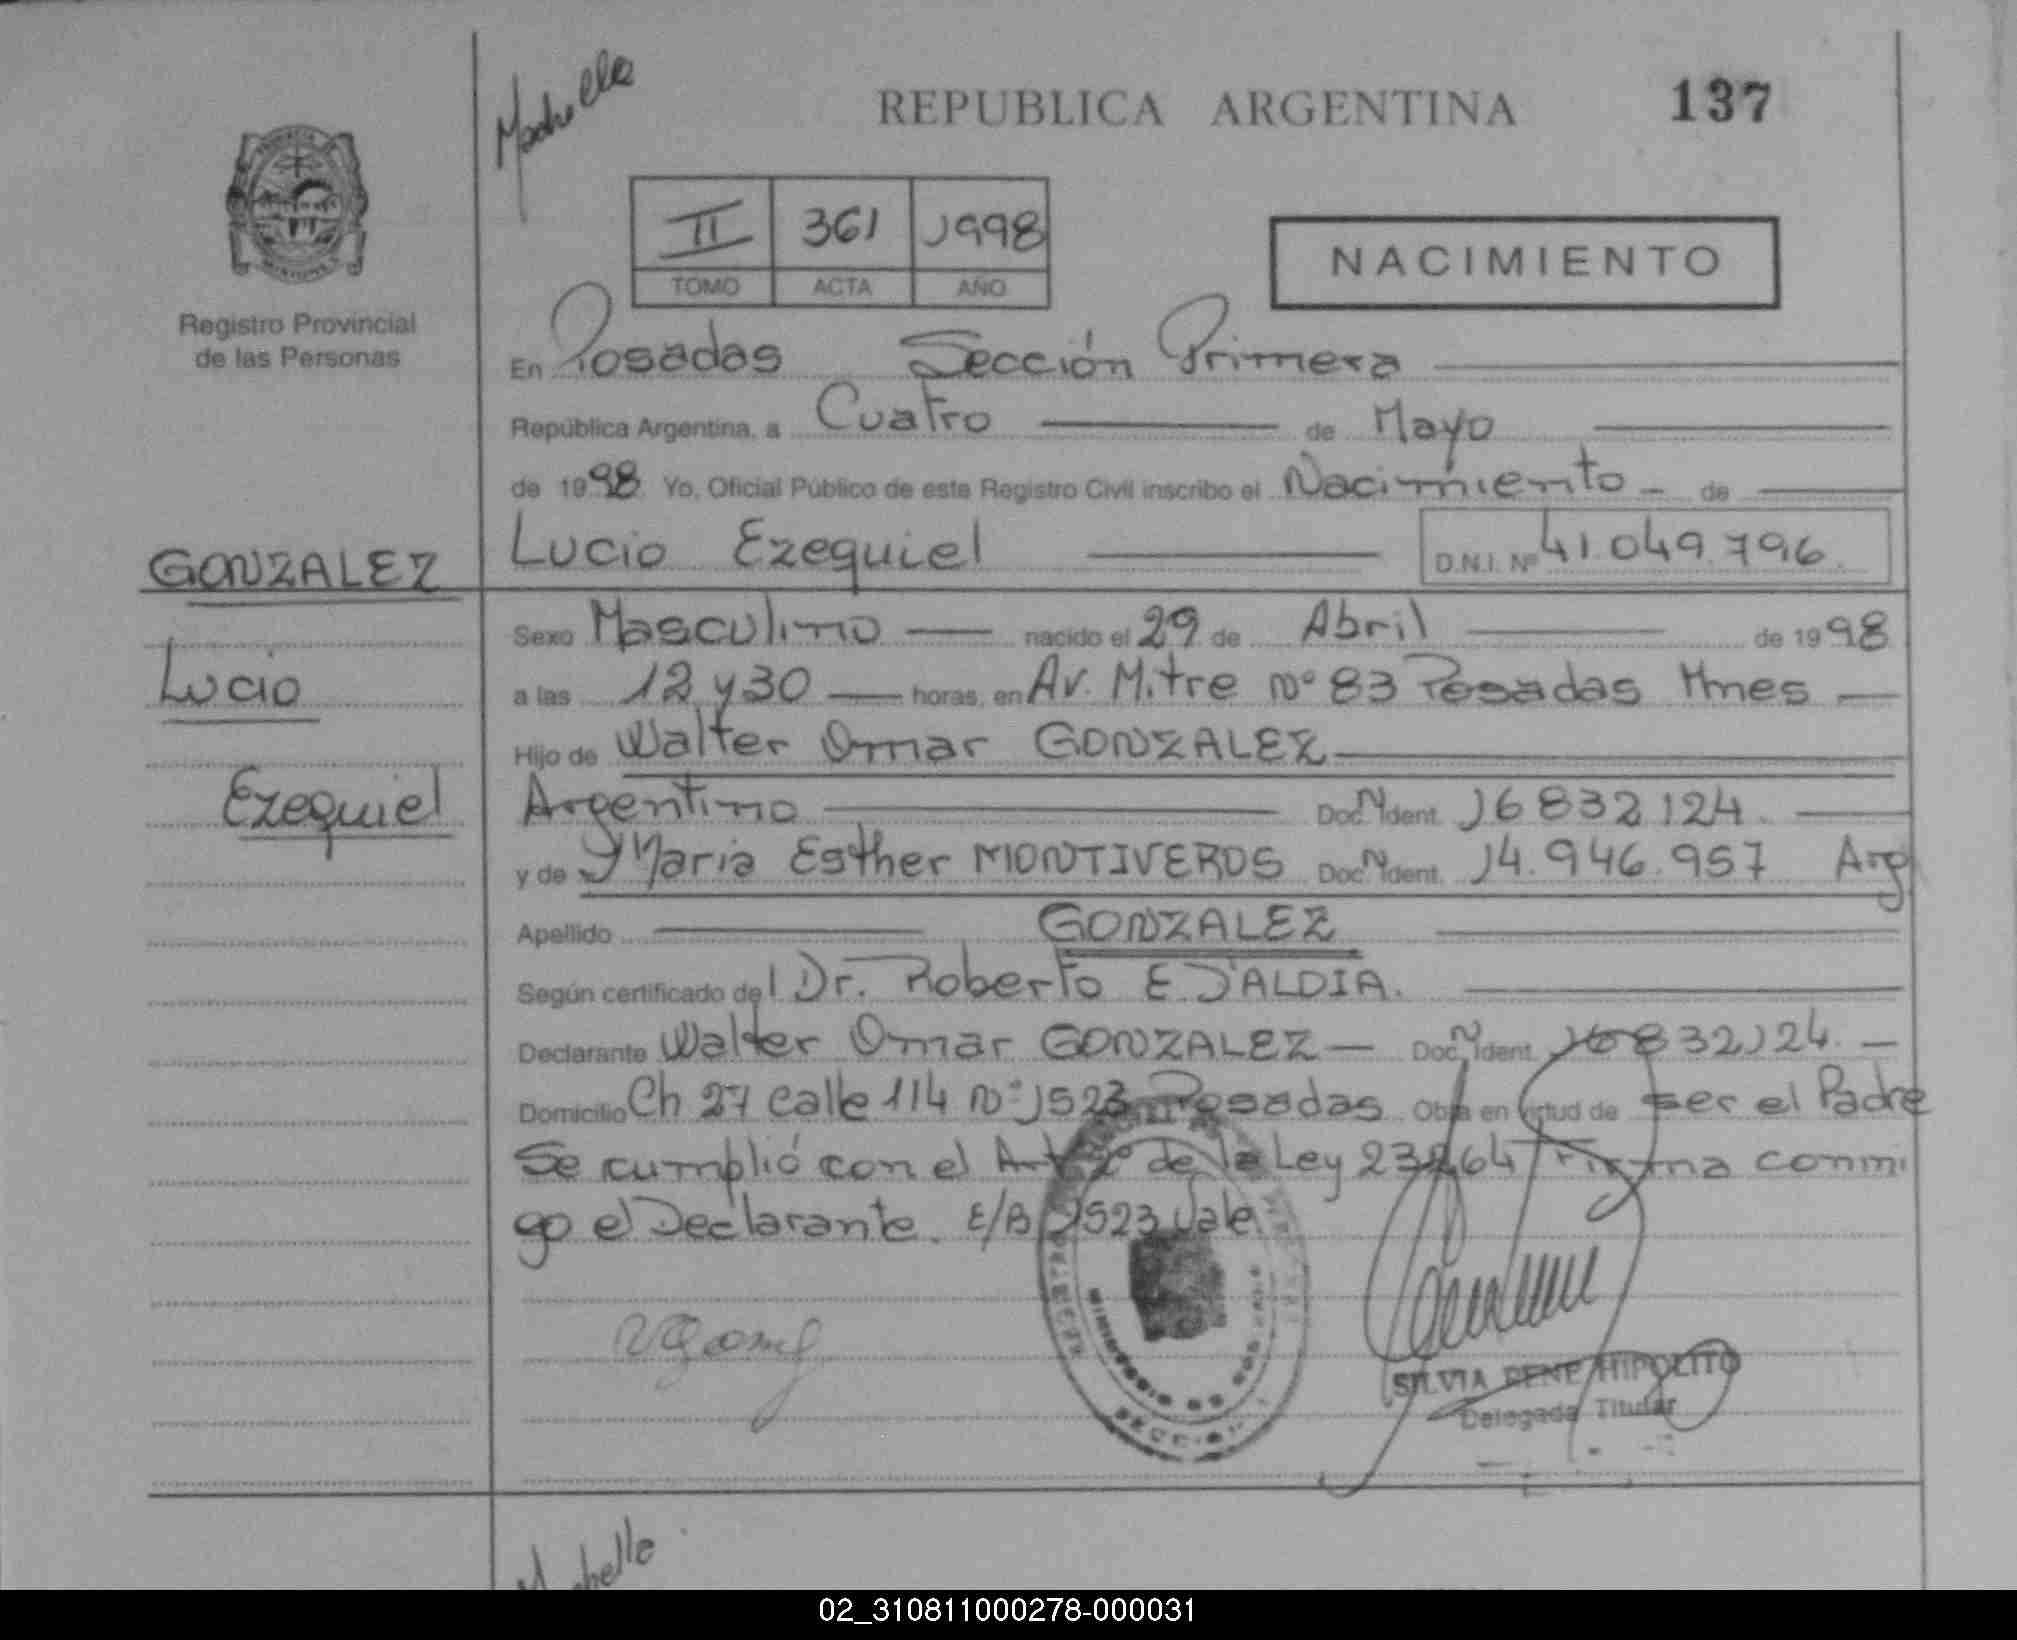 Machella
REPUBLICA ARGENTINA
137
II 361 1998
TOMO ACTA AÑO
NACIMIENTO
Registro Provincial
de las Personas
En Posadas Sección Primera
República Argentina, a Cuatro de Mayo
de 1998 Yo, Oficial Público de este Registro Civil inscribo el Nacimiento de
GONZALEZ
Lucio Ezequiel D.N.I. Nº 41.049.796.
Sexo Masculino nacido el 29 de Abril de 1998
Lucio
a las 12 y 30 horas, en Av. Mitre Nº 83 Posadas Mnes
Hijo de Walter Omar GONZALEZ
Ezequiel
Argentino Doc. N Ident. 16832124.
y de Maria Esther MONTIVEROS Doc. N Ident. 14.946.957 Arg
Apellido GONZALEZ
Según certificado del Dr. Roberto E.
Declarante Walter Omar GONZALEZ Doc. N Ident. 16832124.
Domicilio Ch 27 calle 114 Nº 1523 Posadas Obra en virtud de ser el Padre
Se cumplió con el Art 2º de la Ley 23264 Firma conmi
go el Declarante. E/B 1523 Vale.
SILVIA RENE HIPOLITO
Delegada Titular
02_310811000278-000031